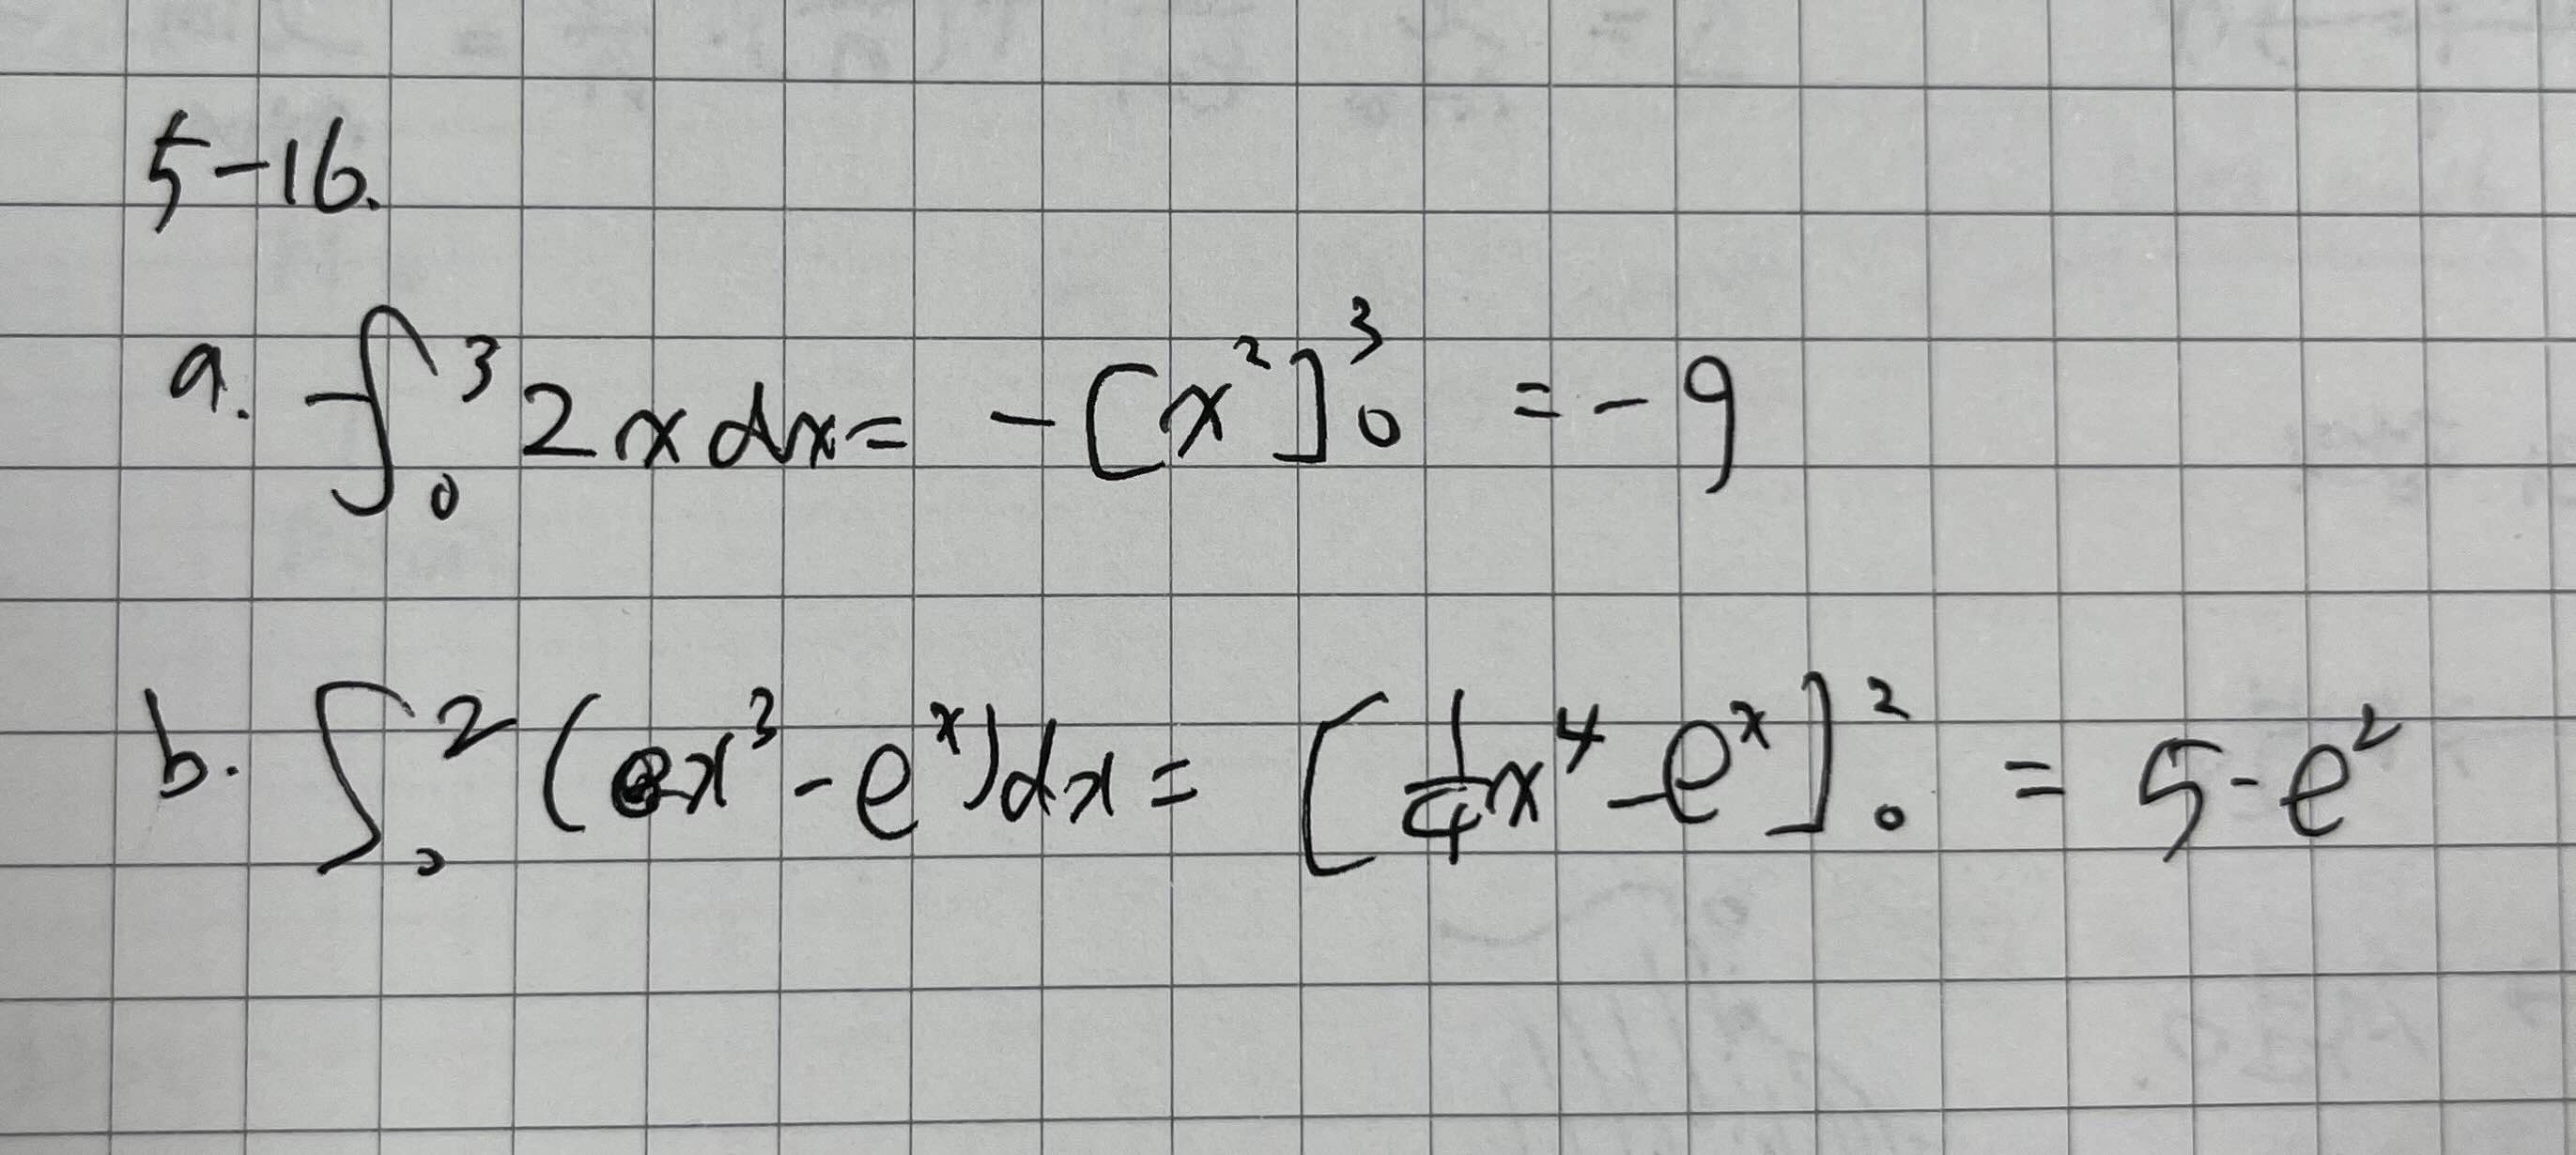 5-16.
a. -∫₀³ 2x dx = -[x²]₀³ = -9
b. ∫₀² (x³ - eˣ)dx = [¼x⁴ - eˣ]₀² = 5 - e²